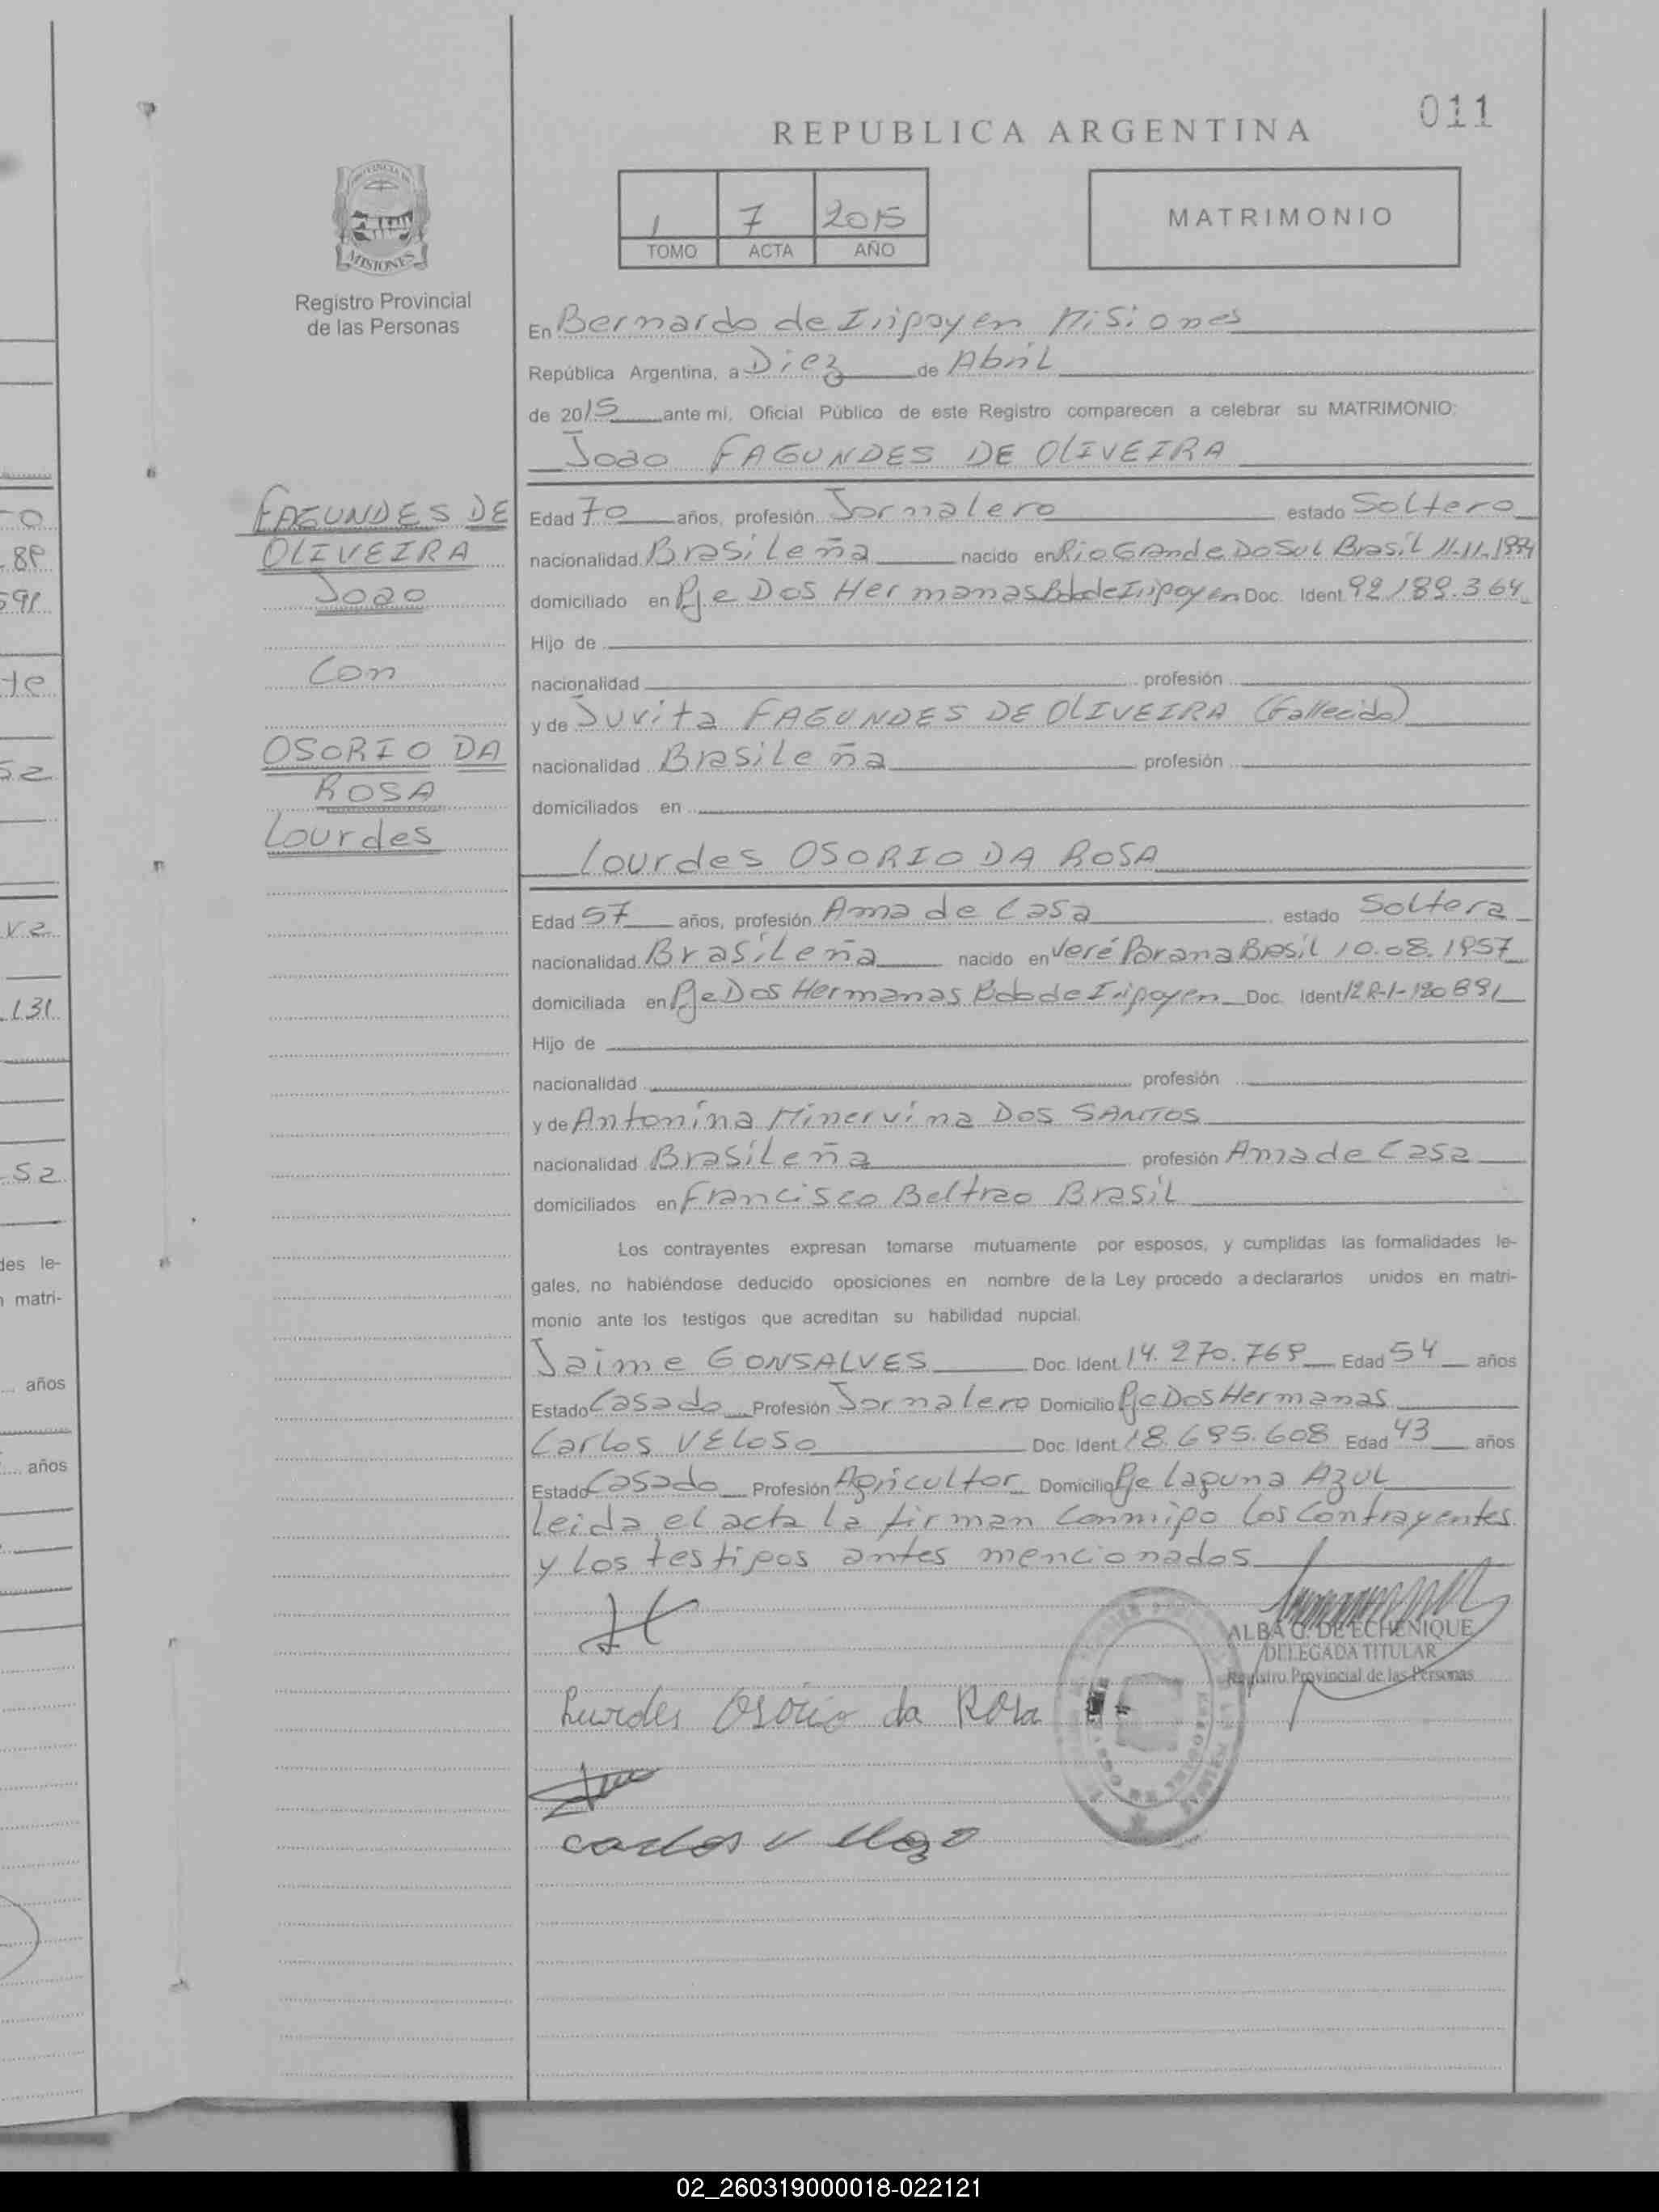 011
REPUBLICA ARGENTINA
1 7 2015
TOMO ACTA AÑO
MATRIMONIO
PROVINCIA DE
MISIONES
Registro Provincial
de las Personas
En Bernardo de Irigoyen Misiones
República Argentina, a Diez de Abril
de 2015 ante mi, Oficial Público de este Registro comparecen a celebrar su MATRIMONIO:
Joao FAGUNDES DE OLIVEIRA
FAGUNDES DE
OLIVEIRA
Joao
Con
OSORIO DA
ROSA
Lourdes
Edad 70 años, profesión Jornalero estado Soltero
nacionalidad Brasileña nacido en Rio Grande Do Sul Brasil 11.11.1994
domiciliado en Pje Dos Hermanas Bdo de Irigoyen Doc. Ident. 92.189.364
Hijo de
nacionalidad profesión
y de Juvita FAGUNDES DE OLIVEIRA (Fallecida)
nacionalidad Brasileña profesión
domiciliados en
Lourdes OSORIO DA ROSA
Edad 57 años, profesión Ama de Casa estado Soltera
nacionalidad Brasileña nacido en Veré Parana Brasil 10.08.1957
domiciliada en Pje Dos Hermanas Bdo de Irigoyen Doc. Ident
Hijo de
nacionalidad profesión
y de Antonina Minervina DOS SANTOS
nacionalidad Brasileña profesión Ama de Casa
domiciliados en Francisco Beltrao Brasil
Los contrayentes expresan tomarse mutuamente por esposos, y cumplidas las formalidades le-
gales, no habiéndose deducido oposiciones en nombre de la Ley procedo a declararlos unidos en matri-
monio ante los testigos que acreditan su habilidad nupcial.
Jaime GONSALVES Doc. Ident. 14.270.769 Edad 54 años
Estado Casado Profesión Jornalero Domicilio Pje Dos Hermanas
Carlos VELOSO Doc. Ident. 18.695.608 Edad 43 años
Estado Casado Profesión Agricultor Domicilio Pje Laguna Azul
leida el acta la firman conmigo los contrayentes
y los testigos antes mencionados
ALBA G. DE ECHENIQUE
DELEGADA TITULAR
Registro Provincial de las Personas
Lurdes Osório da Rosa
carlos v
02_260319000018-022121